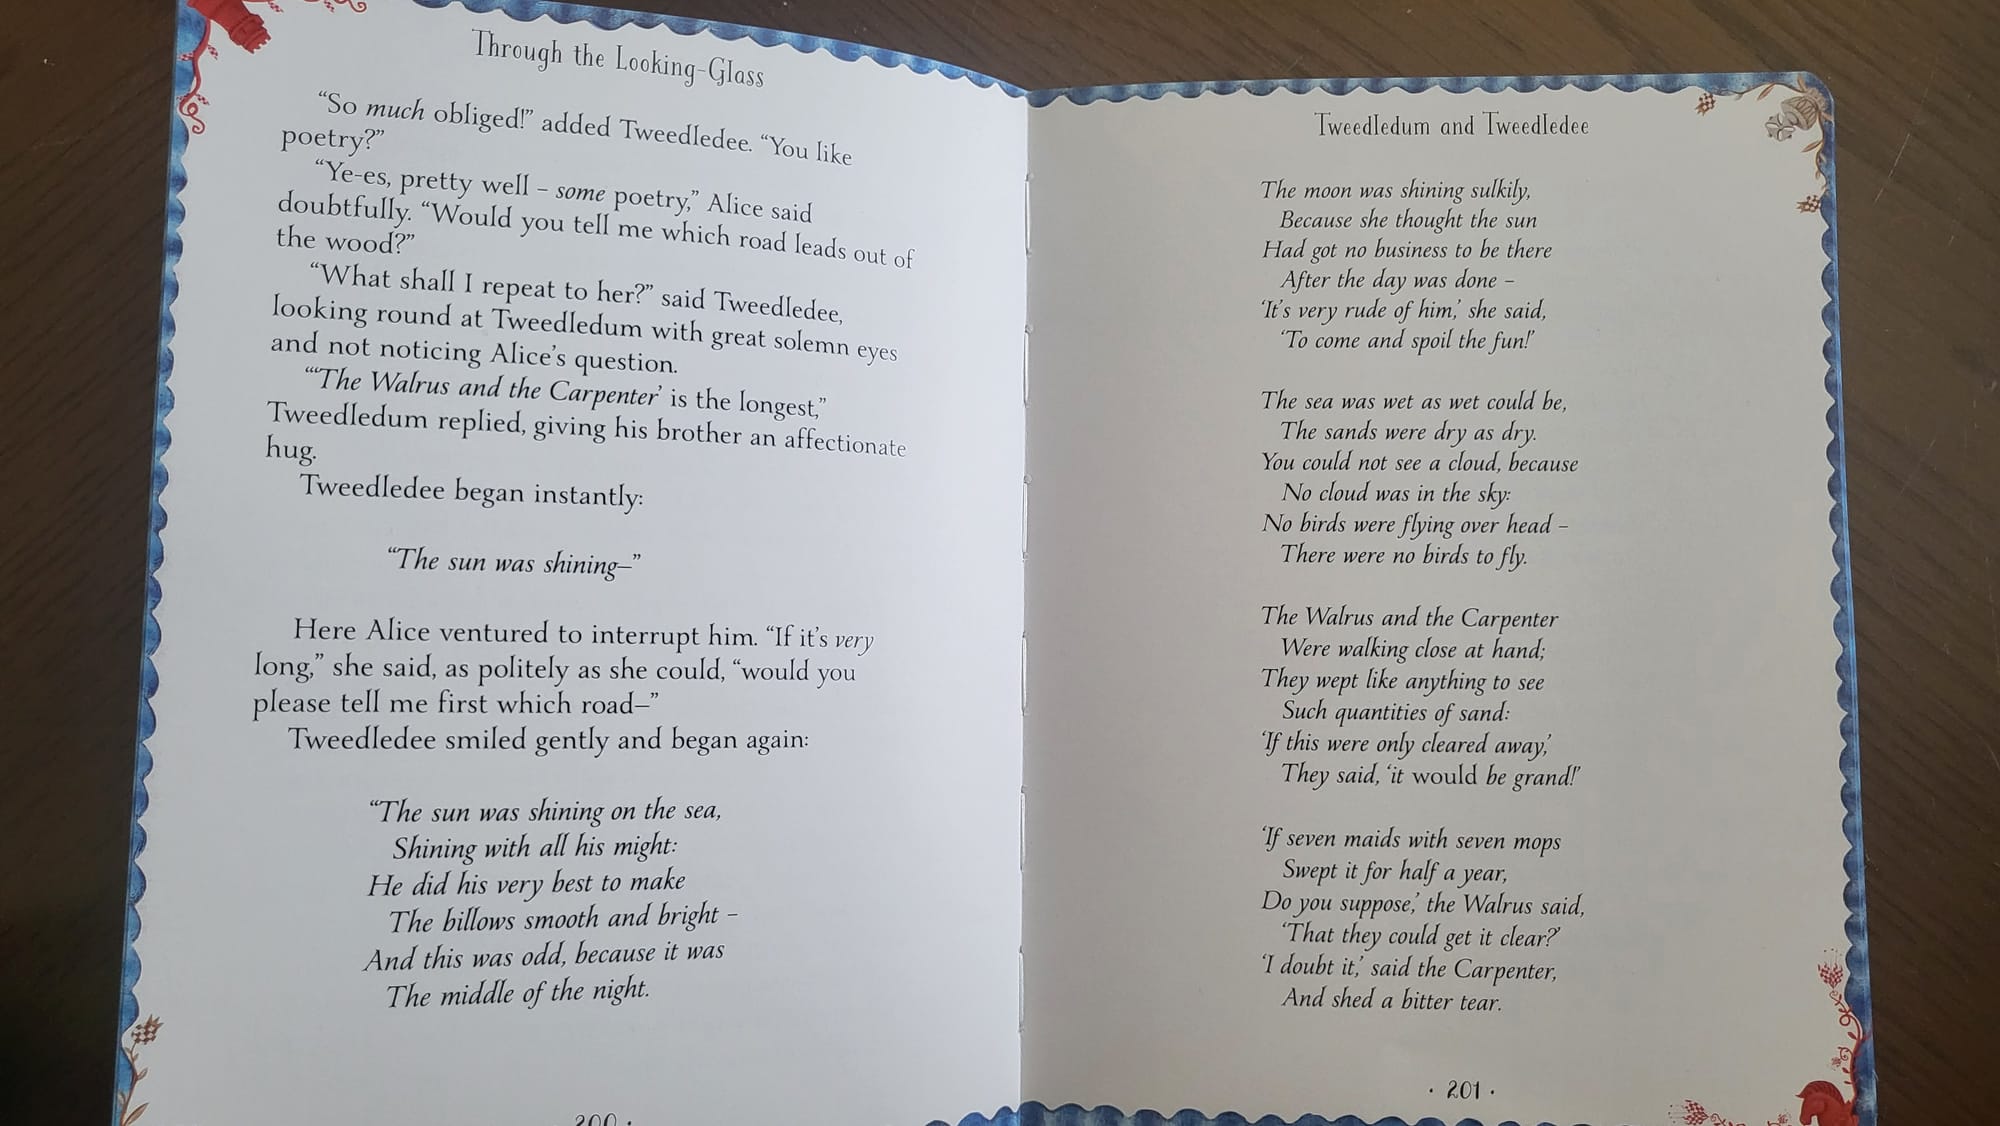 Through the Looking-Glass
“So much obliged!” added Tweedledee. “You like
poetry?”
“Ye-es, pretty well – some poetry,” Alice said
doubtfully. “Would you tell me which road leads out of
the wood?”
“What shall I repeat to her?” said Tweedledee,
looking round at Tweedledum with great solemn eyes
and not noticing Alice’s question.
“‘The Walrus and the Carpenter’ is the longest,”
Tweedledum replied, giving his brother an affectionate
hug.
Tweedledee began instantly:
“The sun was shining–”
Here Alice ventured to interrupt him. “If it’s very
long,” she said, as politely as she could, “would you
please tell me first which road–”
Tweedledee smiled gently and began again:
“The sun was shining on the sea,
Shining with all his might:
He did his very best to make
The billows smooth and bright –
And this was odd, because it was
The middle of the night.
200 ·
Tweedledum and Tweedledee
The moon was shining sulkily,
Because she thought the sun
Had got no business to be there
After the day was done –
‘It’s very rude of him,’ she said,
‘To come and spoil the fun!’
The sea was wet as wet could be,
The sands were dry as dry.
You could not see a cloud, because
No cloud was in the sky:
No birds were flying over head –
There were no birds to fly.
The Walrus and the Carpenter
Were walking close at hand;
They wept like anything to see
Such quantities of sand:
‘If this were only cleared away,’
They said, ‘it would be grand!’
‘If seven maids with seven mops
Swept it for half a year,
Do you suppose,’ the Walrus said,
‘That they could get it clear?’
‘I doubt it,’ said the Carpenter,
And shed a bitter tear.
· 201 ·